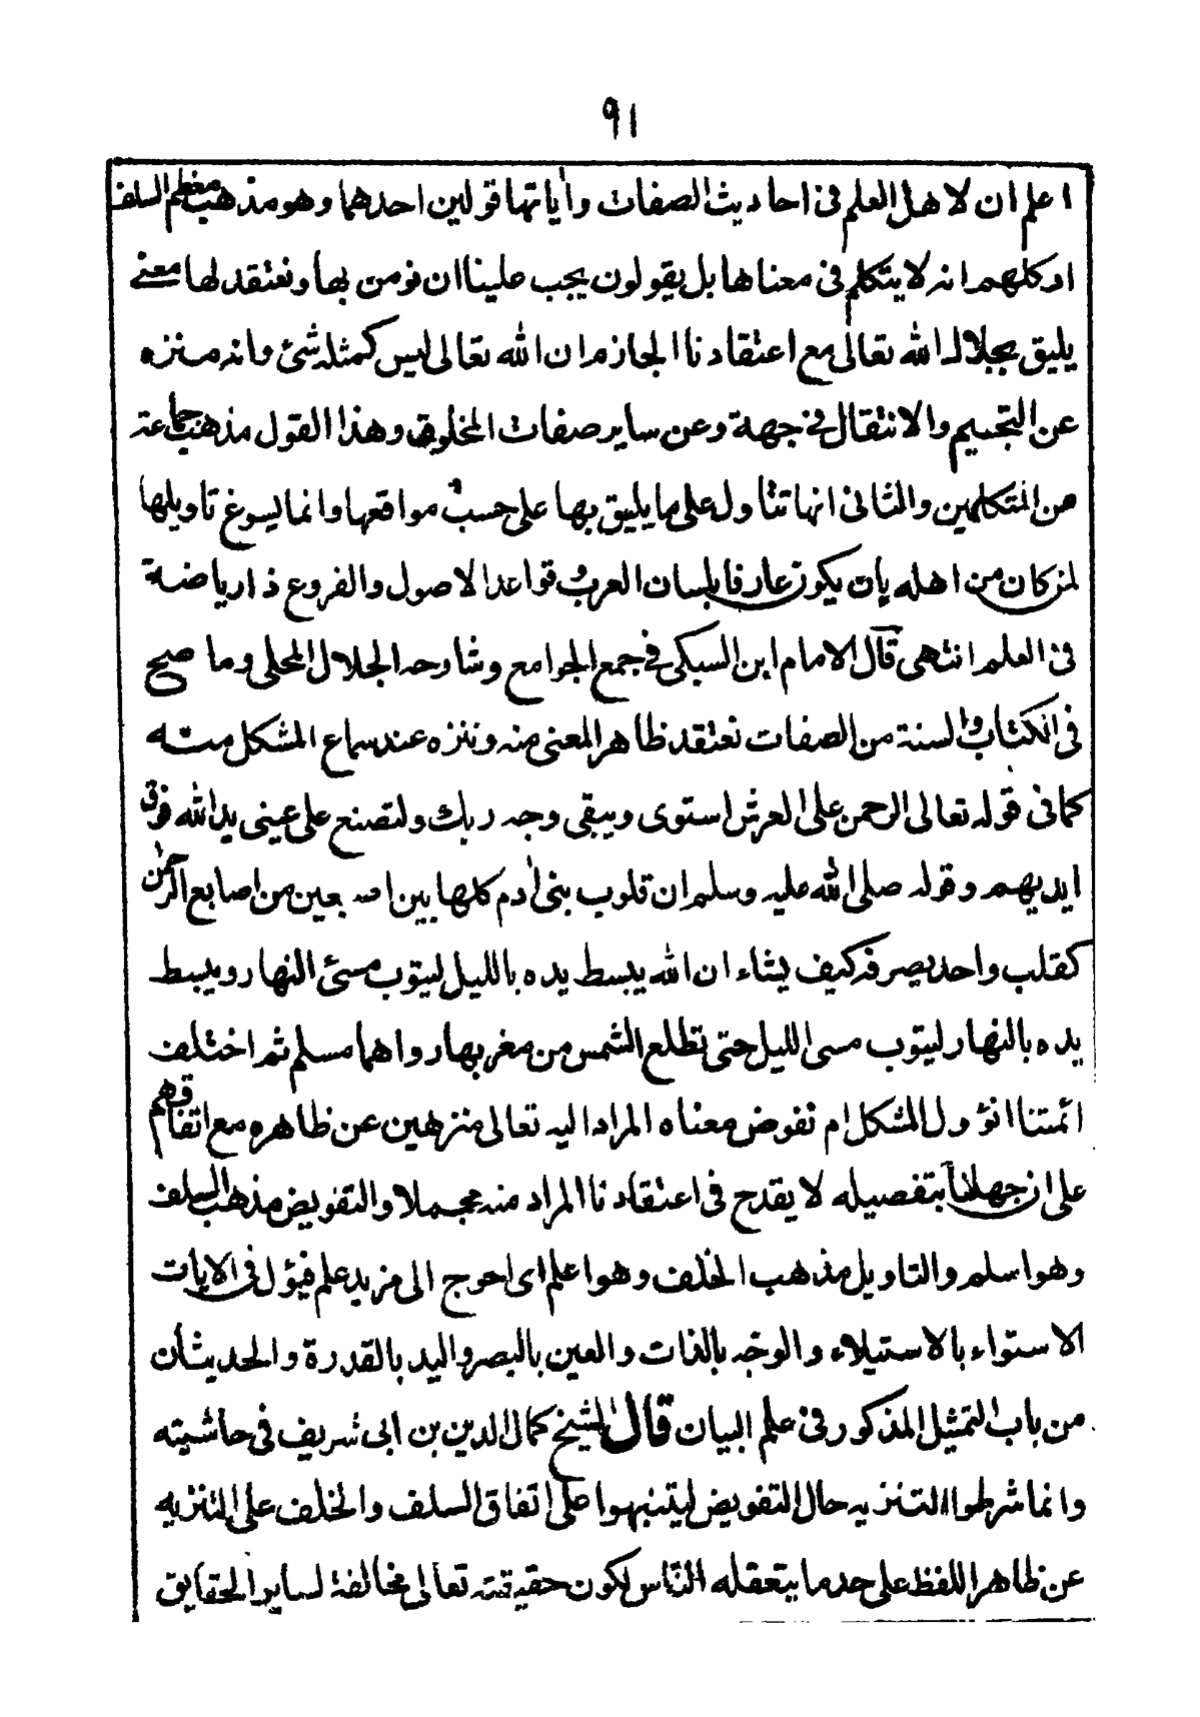 ٩١
اعلم ان لاهل العلم فى احاديث الصفات وآياتها قولين احدهما وهو مذهب معظم السلف
او كلهم انه لا يتكلم فى معناها بل يقولون يجب علينا ان نومن بها ونعتقد لها معنى
يليق بجلال الله تعالى مع اعتقادنا الجازم ان الله تعالى ليس كمثله شئ وانه منزه
عن التجسيم والانتقال فى جهة وعن ساير صفات المخلوق وهذا القول مذهب جماعة
من المتكلمين والثانى انها تتاول على ما يليق بها على حسب مواقعها وانما يسوغ تاويلها
لمن كان من اهله بان يكون عارفا بلسان العرب وقواعد الاصول والفروع ذا رياضة
فى العلم انتهى قال الامام ابن السبكى فى جمع الجوامع وشارحه الجلال المحلى وما صح
فى الكتاب والسنة من الصفات نعتقد ظاهر المعنى منه وننزه عند سماع المشكل منه
كما فى قوله تعالى الرحمن على العرش استوى ويبقى وجه ربك ولتصنع على عينى يد الله فوق
ايديهم وقوله صلى الله عليه وسلم ان قلوب بنى آدم كلها بين اصبعين من اصابع الرحمن
كقلب واحد يصرفه كيف يشاء ان الله يبسط يده بالليل ليتوب مسئ النهار ويبسط
يده بالنهار ليتوب مسى الليل حتى تطلع الشمس من مغربها رواهما مسلم ثم اختلف
ائمتنا انؤول المشكل ام نفوض معناه المراد اليه تعالى منزهين عن ظاهره مع اتفاقهم
على ان جهلنا بتفصيله لا يقدح فى اعتقادنا المراد منه مجملا والتفويض مذهب السلف
وهو اسلم والتاويل مذهب الخلف وهو اعلم اى احوج الى مزيد علم فيؤل فى الايات
الاستواء بالاستيلاء والوجه بالذات والعين بالبصر واليد بالقدرة والحديثان
من باب التمثيل المذكور فى علم البيان قال الشيخ كمال الدين بن ابى شريف فى حاشيته
وانما شرطوا التنزيه حال التفويض ليتنبهوا على اتفاق السلف والخلف على التنزيه
عن ظاهر اللفظ على حد ما يتعقله الناس لكون حقيقته تعالى مخالفة لساير الحقايق